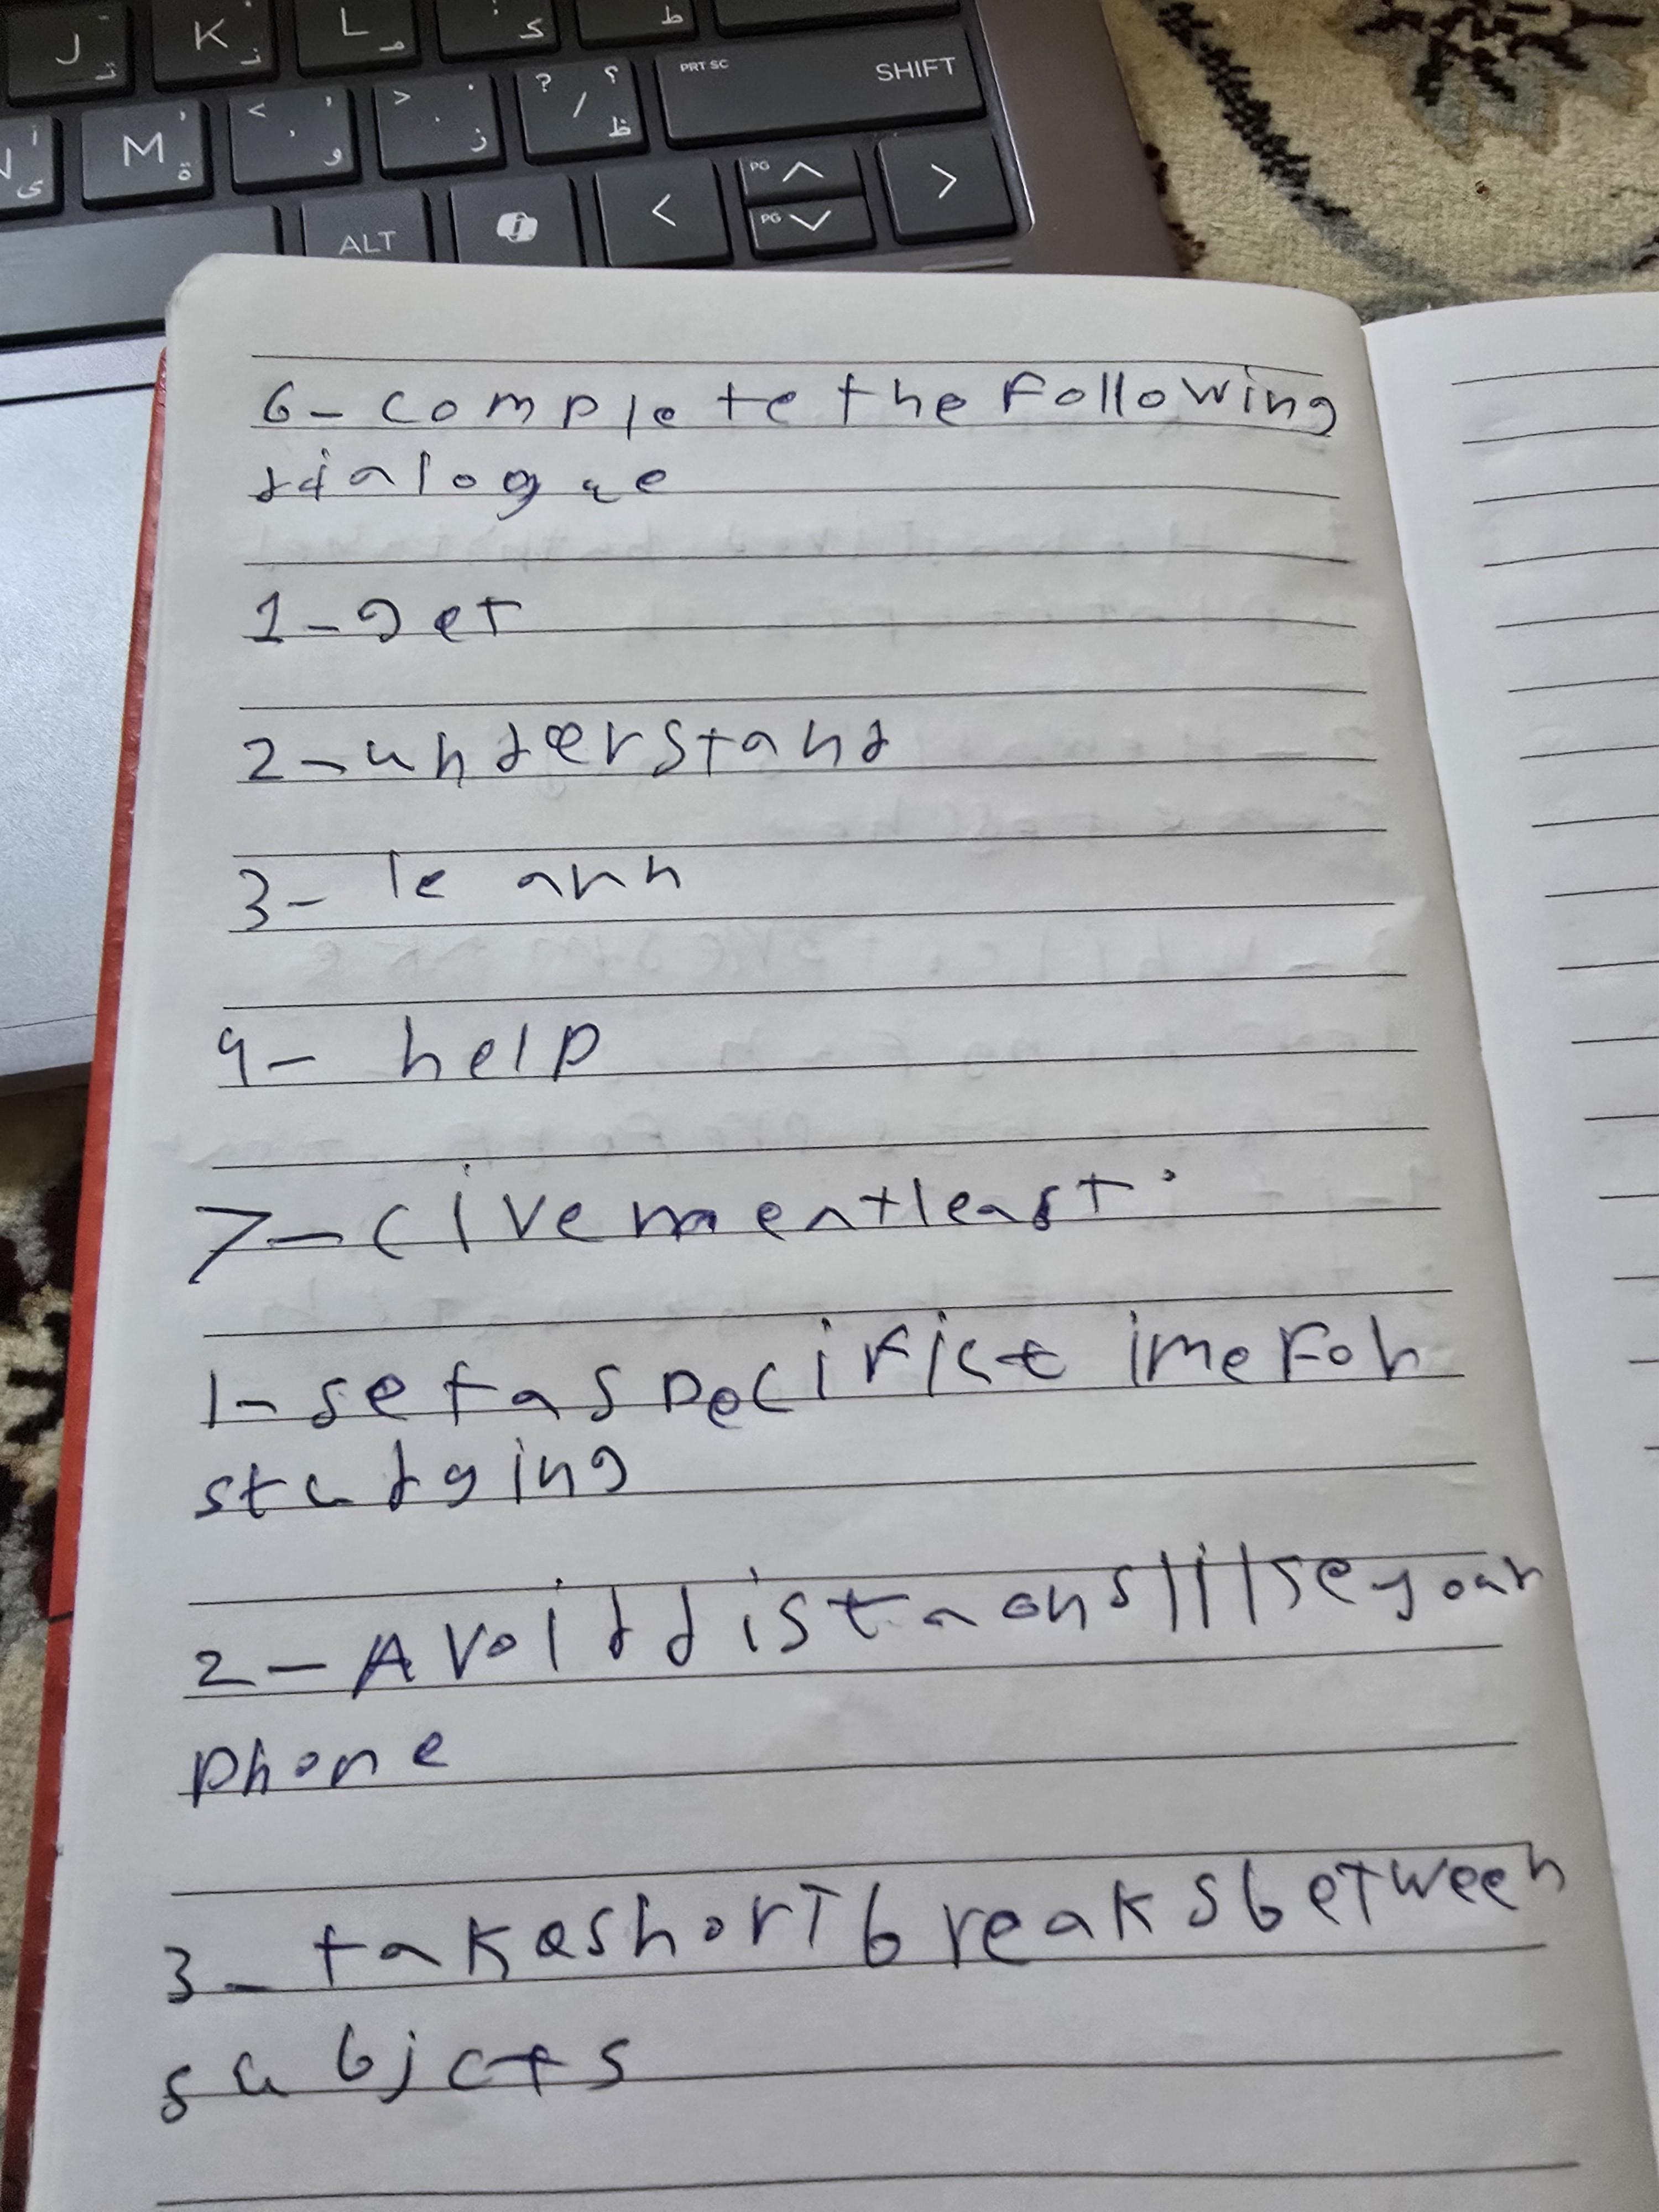 J ت K ن L م ك ط
PRT SC SHIFT
ى M ة < , و > . ز ? / ؟ ظ
ALT < PG PG >
6- complete the Following
dialogue
1- get
2- understand
3- learn
4- help
7- Give me at least:
1- set a specific time For
studying
2- Avoid your
phone
3- take short breaks between
subjcts